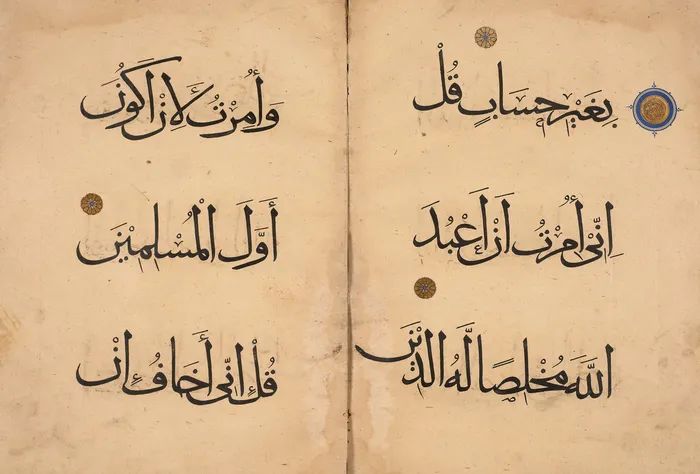 بِغَيْرِ حِسَابٍ قُلْ
اِنّىِ أُمِرْتُ اَنْ اَعْبُدَ
اللّٰهَ مُخْلِصًا لَّهُ الدِّيْنَ
وَأُمِرْتُ لِاَنْ اَكُوْنَ
أَوَّلَ الْمُسْلِمِيْنَ
قُلْ اِنّىِ أَخَافُ اِنْ